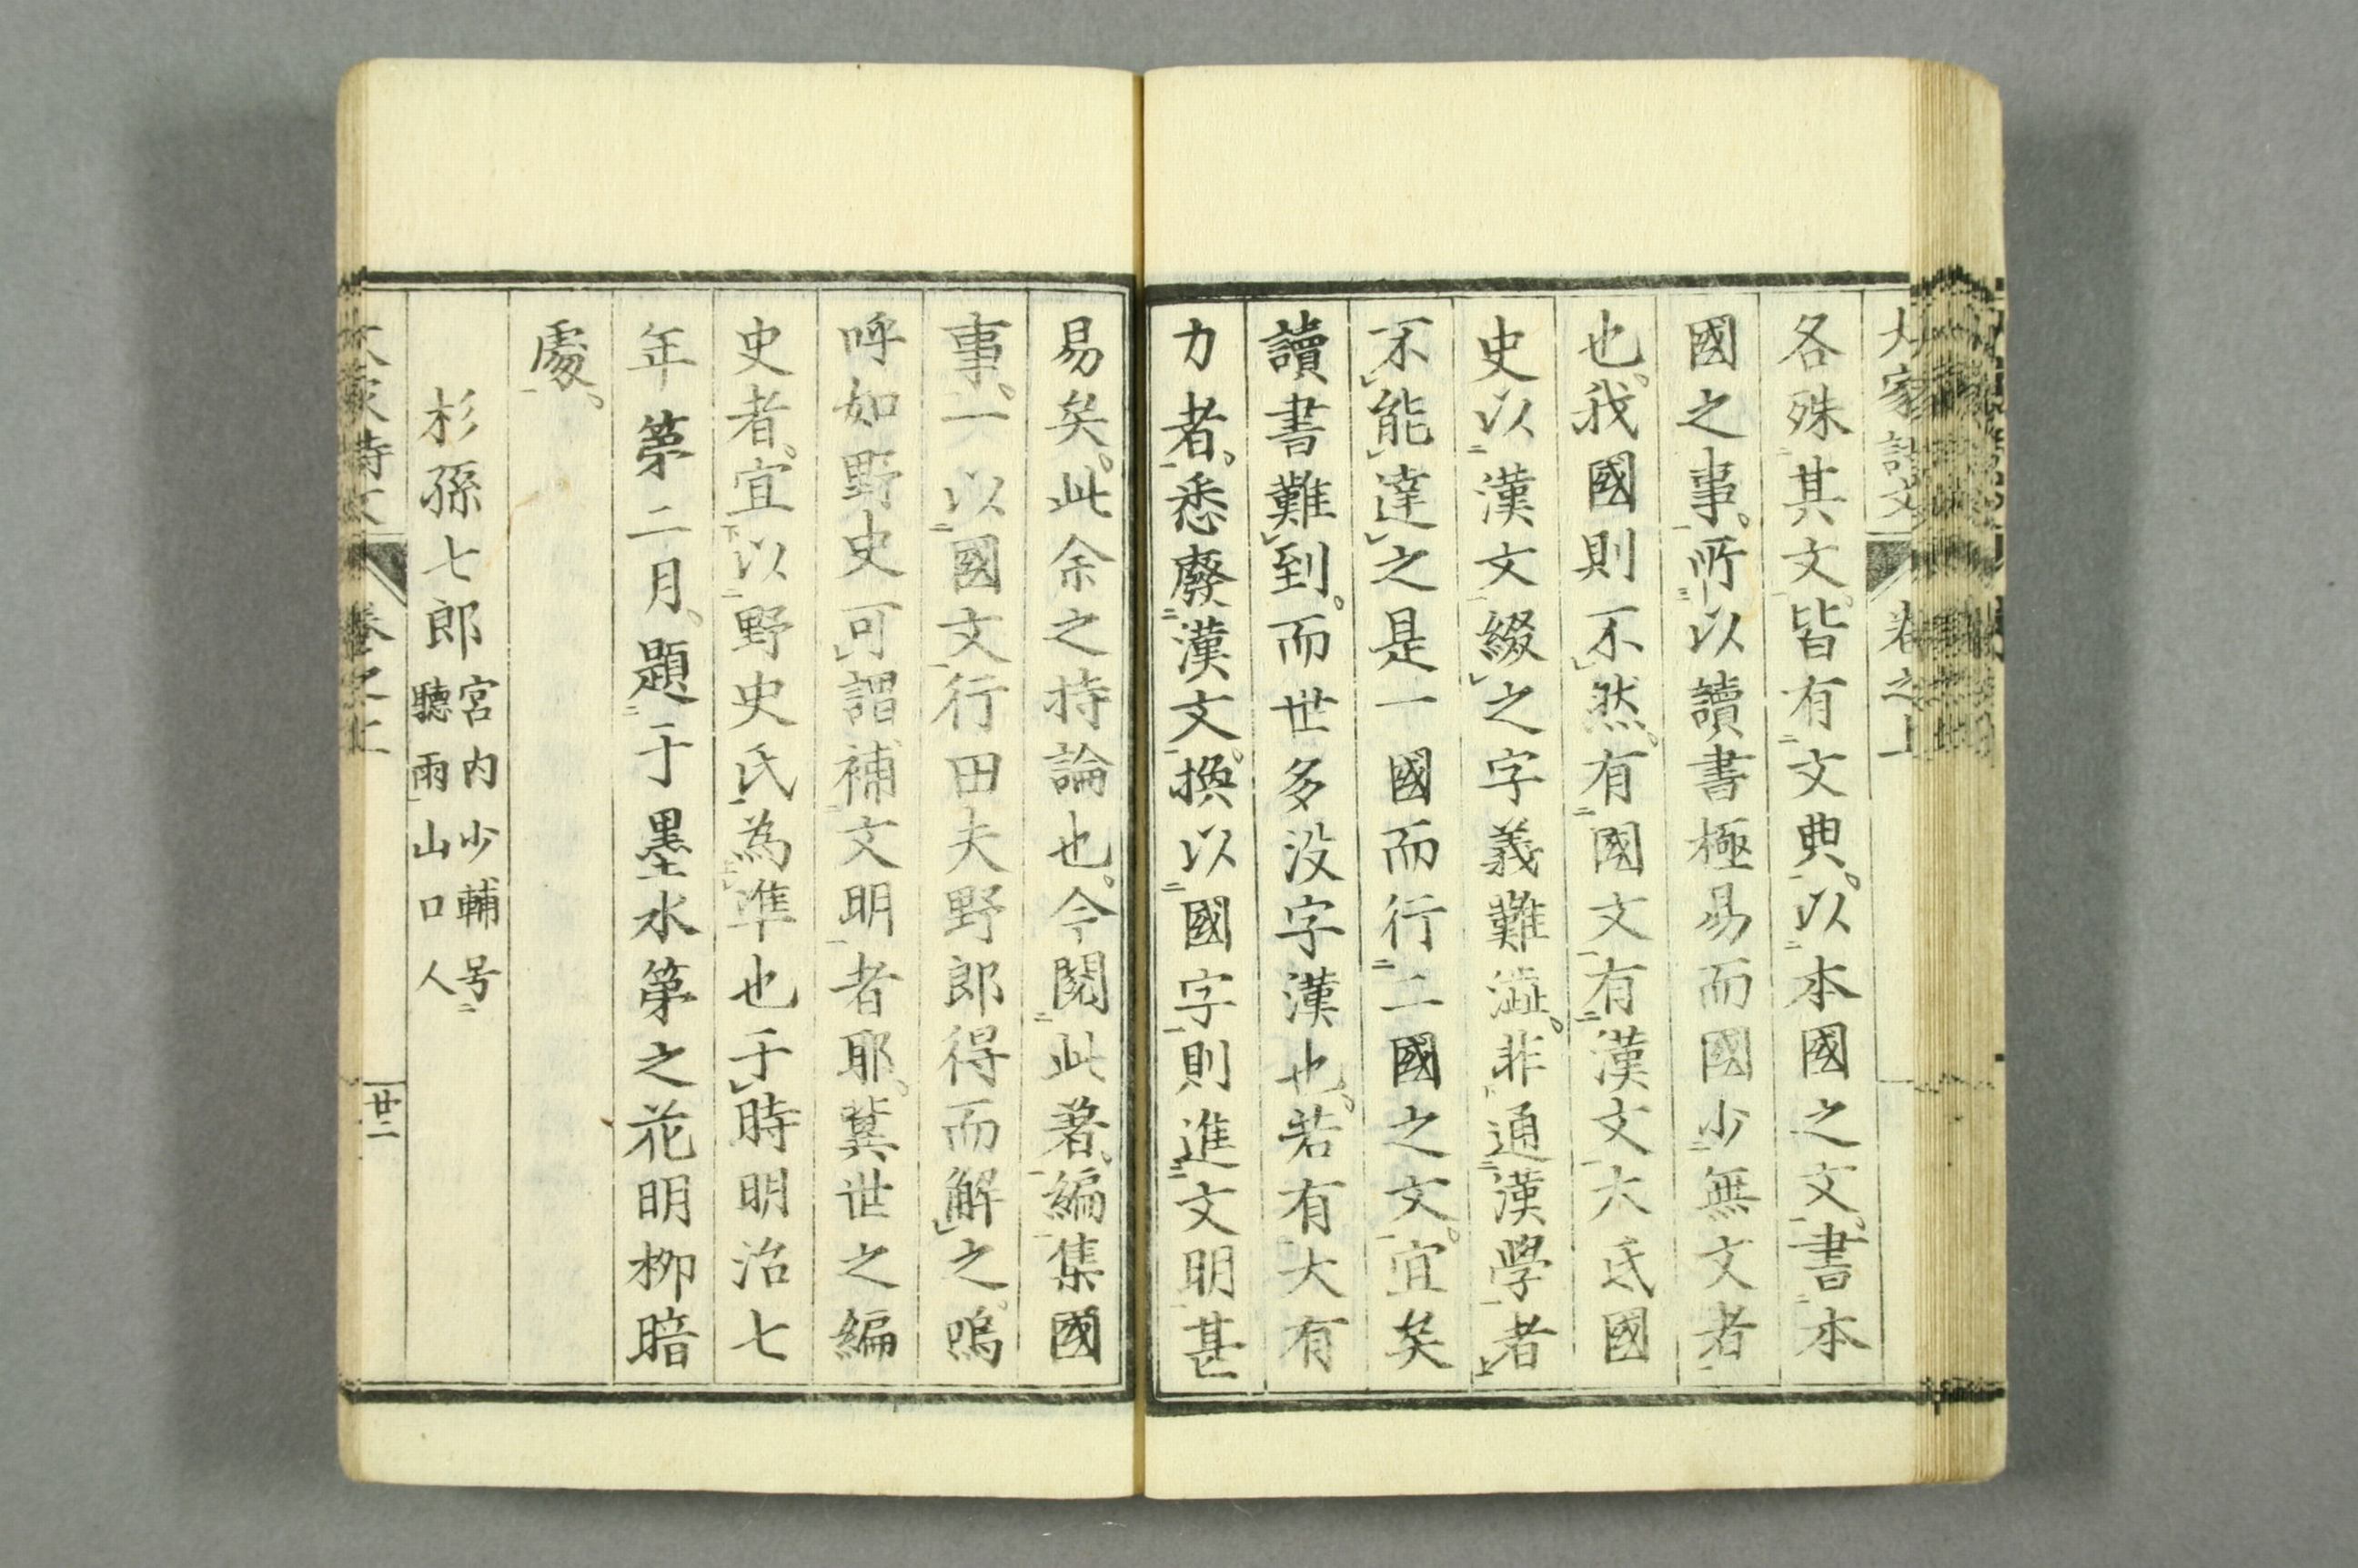 大家詩文 卷之上
各殊其文。皆有文典。以本國之文。書本
國之事。所以讀書極易而國少無文者
也。我國則不然。有國文有漢文大氐國
史以漢文綴之字義難澁。非通漢學者
不能達之是一國而行二國之文。宜矣
讀書難到。而世多没字漢也。若有大有
力者。悉廢漢文。換以國字則進文明甚
易矣。此余之持論也。今閲此著。編集國
事。一以國文行田夫野郎得而解之。嗚
呼如野史可謂補文明者耶。冀世之編
史者。宜以野史氏為準也于時明治七
年第二月。題于墨水第之花明柳暗
處。
杉孫七郎 宮内少輔号
聽雨山口人
卷之上 廿二